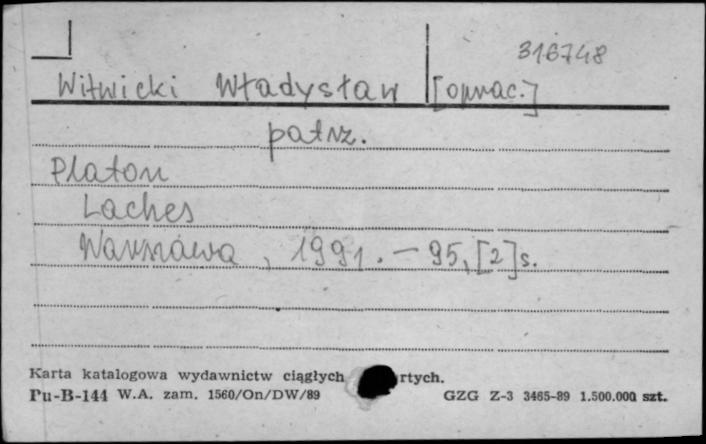 316748
Witwicki Władysław [oprac.]
patrz.
Platon
Laches
Warszawa, 1991. - 95, [2] s.
Karta katalogowa wydawnictw ciągłych rtych.
Pu-B-144 W.A. zam. 1560/On/DW/89 GZG Z-3 3465-89 1.500.000 szt.